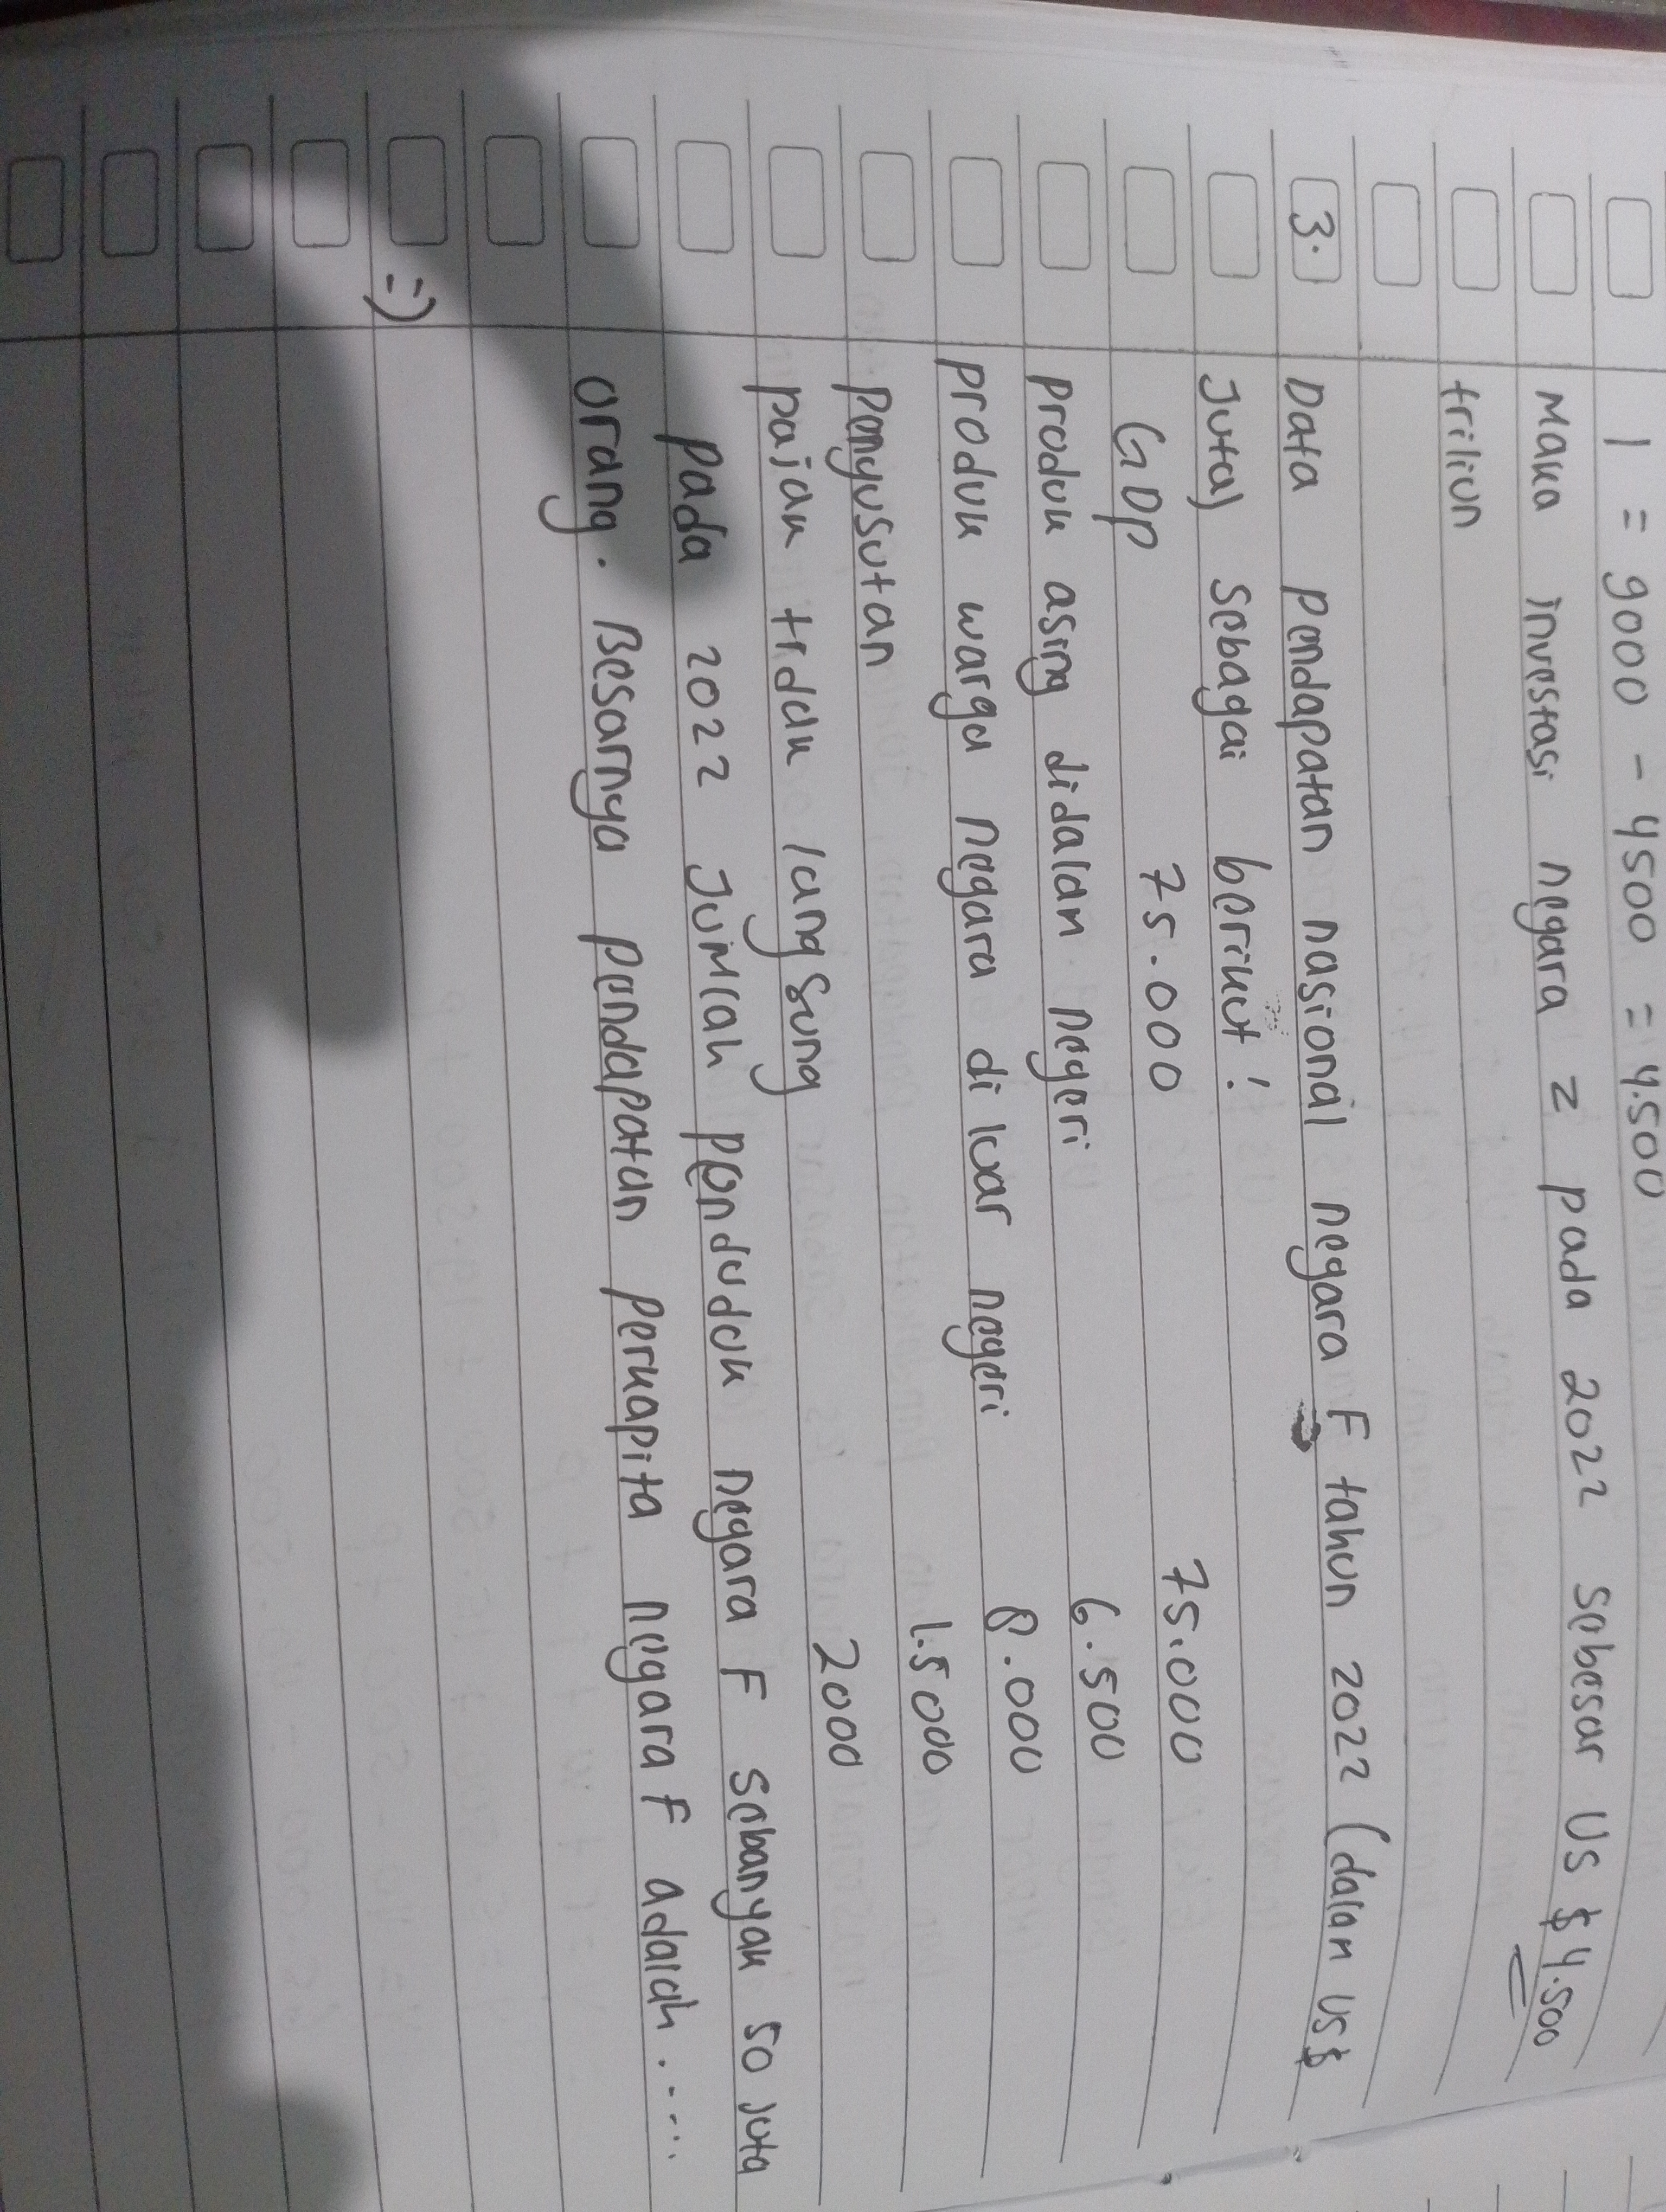 I = 9000 - 4500 = 4.500
Maka investasi negara Z pada 2022 sebesar US $ 4.500
triliun
3. Data pendapatan nasional negara F tahun 2022 (dalam US $
Juta) sebagai berikut !
GDP 75.000 75.000
produk asing didalam negeri 6.500
produk warga negara di luar negeri 8.000
Penyusutan 1.5000
pajak tidak langsung 2000
pada 2022 Jumlah penduduk negara F sebanyak 50 juta
orang. Besarnya pendapatan perkapita negara F adalah.....
=)